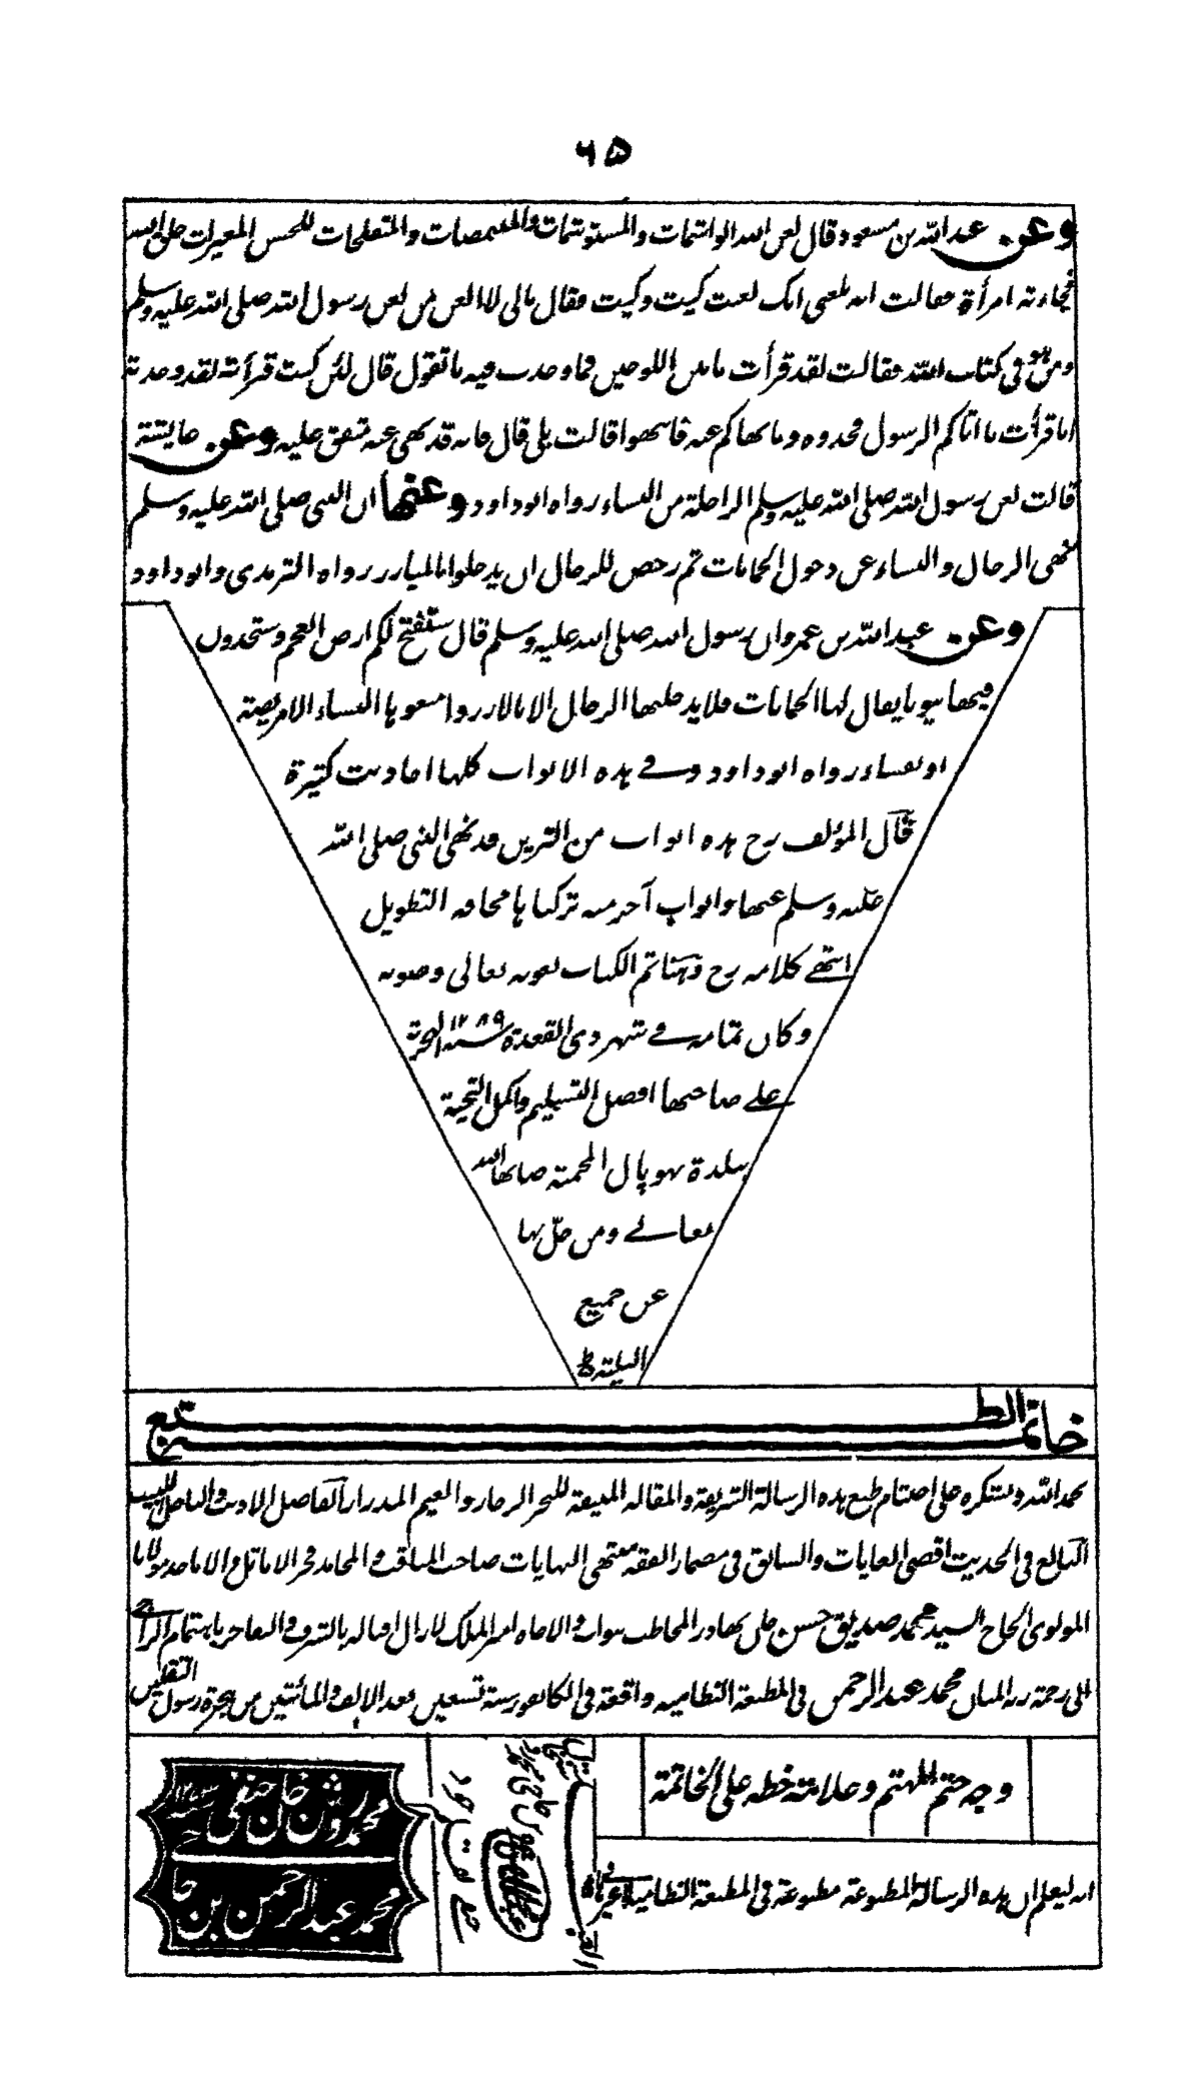 ٦٥
وعن عبد الله بن مسعود قال لعن الله الواشمات والمستوشمات والمتنمصات والمتفلجات للحسن المغيرات خلق الله
فجاءته امرأة فقالت انه بلغنى انك لعنت كيت وكيت فقال مالى لا العن من لعن رسول الله صلى الله عليه وسلم
ومن هو فى كتاب الله فقالت لقد قرأت ما بين اللوحين فما وجدت فيه ما تقول قال لئن كنت قرأته لقد وجدته
اما قرأت ما اتاكم الرسول فخذوه وما نهاكم عنه فانتهوا قالت بلى قال فانه قد نهى عنه متفق عليه وعن عايشة
قالت لعن رسول الله صلى الله عليه وسلم الراجلة من النساء رواه ابو داود وعنها ان النبى صلى الله عليه وسلم
نهى الرجال والنساء عن دخول الحمامات ثم رخص للرجال ان يدخلوا بالميازر رواه الترمذى وابو داود
وعن عبد الله بن عمرو ان رسول الله صلى الله عليه وسلم قال ستفتح لكم ارض العجم وستجدون
فيها بيوتا يقال لها الحمامات فلا يدخلنها الرجال الا بالازر وامنعوها النساء الا مريضة
او نفساء رواه ابو داود وفى هذه الابواب كلها احاديث كثيرة
قال المؤلف رح هذه ابواب من التزين قد نهى النبى صلى الله
عليه وسلم عنها وابواب آخر منه تركناها مخافة التطويل
انتهى كلامه رح وههنا تم الكتاب بعونه تعالى وصونه
وكان تمامه فى شهر ذى القعدة سنة ١٢٨٩ الهجرة
على صاحبها افضل التسليم واكمل التحية
ببلدة بهوپال المحمية صانها الله
تعالى ومن حل بها
عن جميع
البلية
خاتمة الطبع
نحمد الله ونشكره على اختتام طبع هذه الرسالة الشريفة والمقالة المنيفة للبحر الزخار والغيم المدرار الفاضل الاديب والناصل اللبيب
البالغ فى الحديث اقصى الغايات والسابق فى مضمار الفقه منتهى النهايات صاحب المناقب والمحامد فخر الاماثل والاماجد مولانا
المولوى الحاج السيد محمد صديق حسن خان بهادر المخاطب بنواب والاجاه امير الملك لا زال اقباله بالشرف والتفاخر باهتمام الراجى
الى رحمة ربه المنان محمد عبد الرحمن فى المطبعة النظاميه واقعة فى الكانفور سنة تسعين بعد الالف والمأتين من هجرة رسول الثقلين
وجه ختم المهتم وعلامة خطه على الخاتمة
انه ليعلم ان هذه الرسالة المطبوعة مطبوعة فى المطبعة النظامية
محمد روشن خان حنفى
محمد عبد الرحمن بن حا